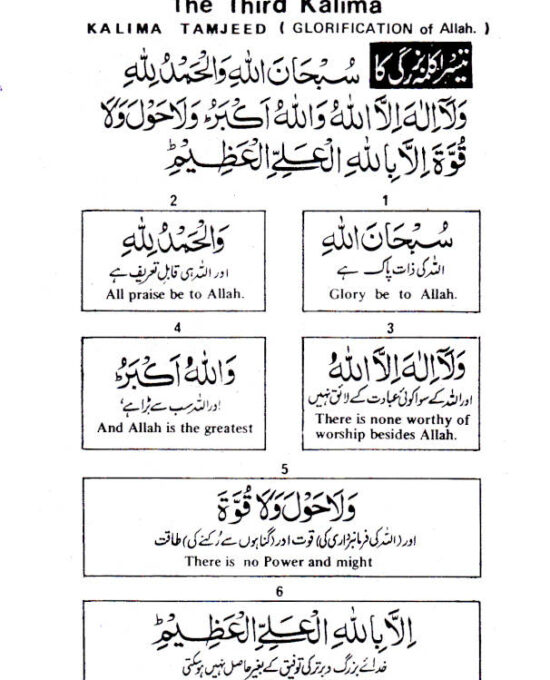 The Third Kalima
KALIMA TAMJEED ( GLORIFICATION of Allah. )
تیسرا کلمہ بزرگی کا
سُبْحَانَ اللهِ وَالْحَمْدُ لِلّٰهِ
وَلَآ اِلٰهَ اِلَّا اللهُ وَاللهُ اَكْبَرُ وَلَاحَوْلَ وَلَا
قُوَّةَ اِلَّا بِاللهِ الْعَلِيِّ الْعَظِيْمِ
1
سُبْحَانَ اللهِ
اللہ کی ذات پاک ہے
Glory be to Allah.
2
وَالْحَمْدُ لِلّٰهِ
اور اللہ ہی قابل تعریف ہے
All praise be to Allah.
3
وَلَآ اِلٰهَ اِلَّا اللهُ
اور اللہ کے سوا کوئی عبادت کے لائق نہیں
There is none worthy of
worship besides Allah.
4
وَاللهُ اَكْبَرُ
اور اللہ سب سے بڑا ہے
And Allah is the greatest
5
وَلَاحَوْلَ وَلَا قُوَّةَ
اور (اللہ کی فرمانبرداری کی) قوت اور (گناہوں سے رُکنے کی) طاقت
There is no Power and might
6
اِلَّا بِاللهِ الْعَلِيِّ الْعَظِيْمِ
خدائے بزرگ و برتر کی توفیق کے بغیر حاصل نہیں ہوسکتی